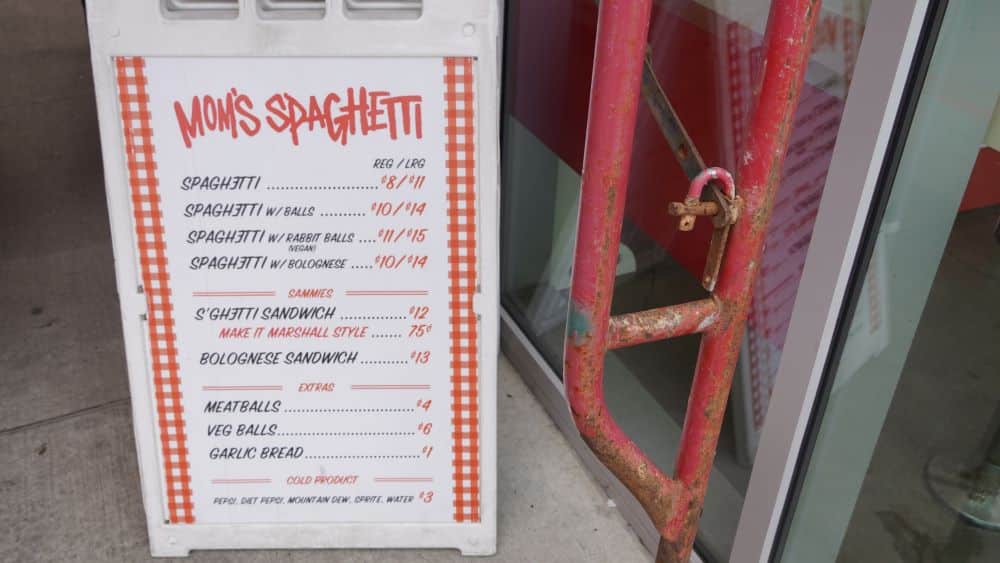 MOM'S SPAGHETTI
REG / LRG
SPAGHƎTTI ........................ $8/$11
SPAGHƎTTI W/ BALLS .......... $10/$14
SPAGHƎTTI W/ RABBIT BALLS .... $11/$15
(VEGAN)
SPAGHƎTTI W/ BOLOGNESE ..... $10/$14
SAMMIES
S'GHƎTTI SANDWICH ............... $12
MAKE IT MARSHALL STYLE ....... 75¢
BOLOGNESE SANDWICH ........... $13
EXTRAS
MEATBALLS ............................. $4
VEG BALLS ............................... $6
GARLIC BREAD ......................... $1
COLD PRODUCT
PEPSI, DIET PEPSI, MOUNTAIN DEW, SPRITE, WATER $3